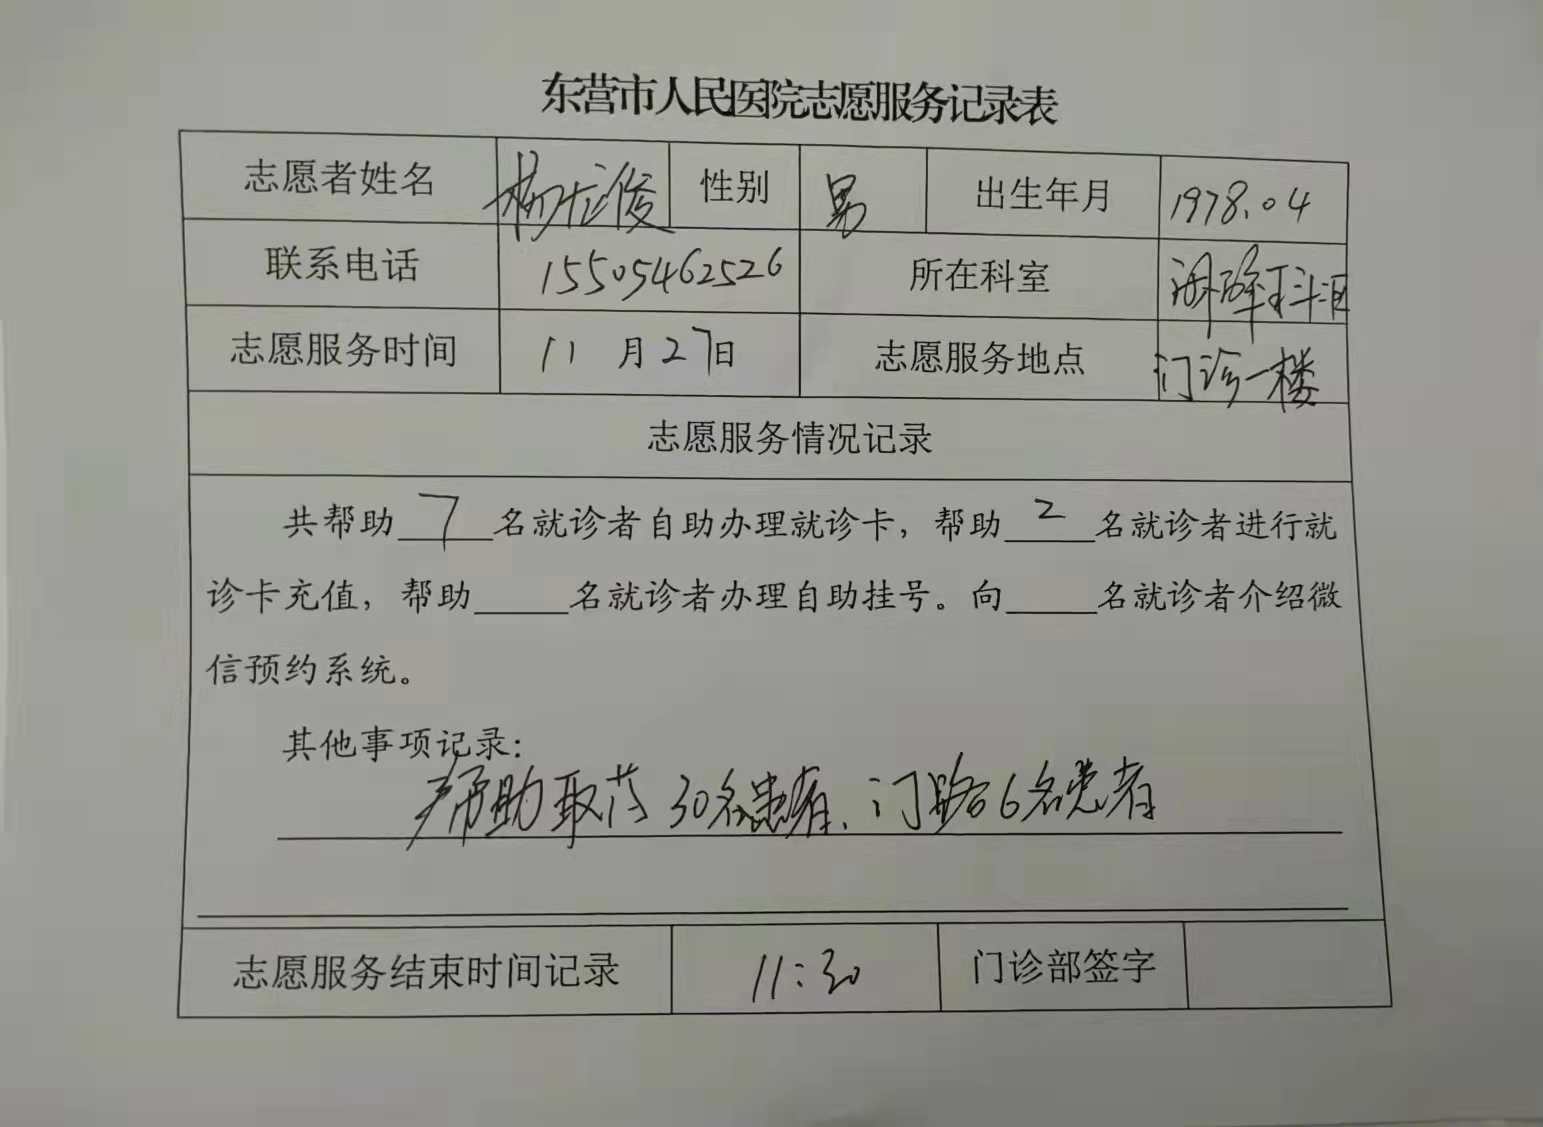 东营市人民医院志愿服务记录表
志愿者姓名 杨 俊 性别 男 出生年月 1978.04
联系电话 15505462526 所在科室 科
志愿服务时间 11月27日 志愿服务地点 门诊一楼
志愿服务情况记录
共帮助 7 名就诊者自助办理就诊卡，帮助 2 名就诊者进行就
诊卡充值，帮助____名就诊者办理自助挂号。向____名就诊者介绍微
信预约系统。
其他事项记录：
帮助取药30名患者、 6名患者
志愿服务结束时间记录 11:30 门诊部签字